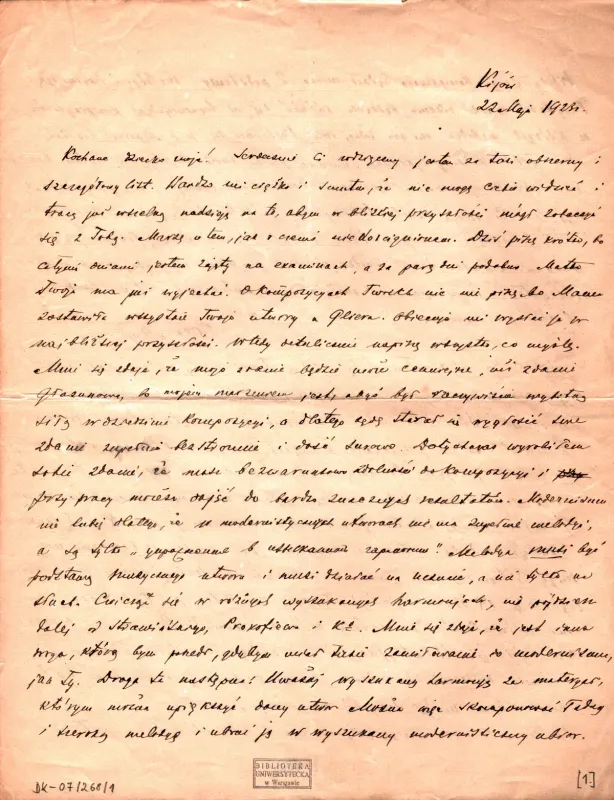 Kijów
22 Maja 1923r.
Kochane dziecko moje! Serdecznie Ci wdzięczny jestem za Twój obszerny i
szczegółowy list. Bardzo mi ciężko i smutno, że nie mogę Ciebie widzieć i
tracę już wszelką nadzieję na to, abym w bliższej przyszłości mógł zobaczyć
się z Tobą. Marzę o tem, jak o czemś niedoścignionem. Dziś piszę krótko, bo
całymi dniami jestem zajęty na examinach, a za parę dni podobno Matka
Twoja ma już wyjechać. O kompozycjach Twoich nic nie piszę, bo Mama
zostawiła wszystkie Twoje utwory u Gliera. Obiecuje mi wysłać je w
najbliższej przyszłości. Wtedy detalicznie napiszę wszystko, co myślę.
Mnie się zdaje, że moje zdanie będzie może cenniejsze, niż zdanie
Głazunowa, bo mojem marzeniem jest, abyś był rzeczywiście wybitną
siłą w dziedzinie kompozycji, a dlatego będę starał się wygłosić swe
zdanie zupełnie bezstronnie i dość surowo. Dotychczas wyrobiłem
sobie zdanie, że masz bezwarunkowo zdolności do kompozycji i
przy pracy możesz dojść do bardzo znacznych rezultatów. Modernizmu
nie lubię dlatego, że w modernistycznych utworach nie ma zupełnie melodji,
a są tylko „упражнение в изысканной гармонии". Melodja musi być
podstawą muzycznego utworu i musi działać na uczucie, a nie tylko na
słuch. Ćwicząc się w różnych wyszukanych harmonjach, nie pójdziesz
dalej od Strawińskiego, Prokofiewa i Kº. Mnie się zdaje, że jest inna
droga, którą bym poszedł, gdybym miał takie zamiłowanie do modernizmu,
jak Ty. Droga ta następna: Uważaj wyszukaną harmonję za materjał,
którym można upiększyć dany utwór. Można więc skomponować ładną
i szeroką melodję i ubrać ją w wyszukany modernistyczny ubiór.
BIBLIOTEKA
UNIWERSYTECKA
w Warszawie
DK-07/260/1
[1.]